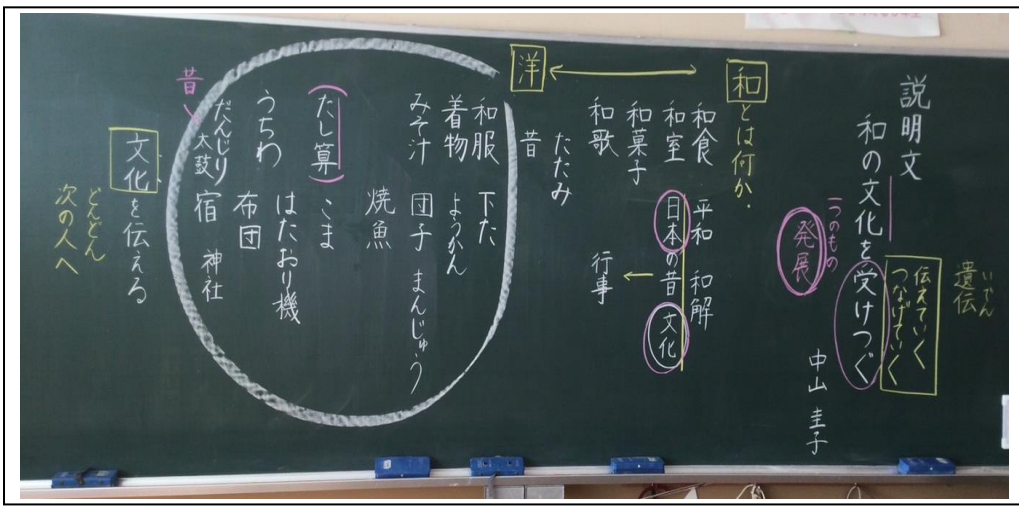 説明文
和の文化を受けつぐ
中山 圭子
いでん
遺伝
伝えていく
つなげていく
一つのもの
発展
和とは何か。
和食 平和 和解
和室 日本の昔 文化
和菓子
和歌 行事
たたみ
昔
洋
和服 下た
着物 ようかん
みそ汁 団子 まんじゅう
焼魚
(たし算) こま
うちわ はたおり機
布団
だんじり 宿 神社
太鼓
昔、
文化を伝える
どんどん
次の人へ